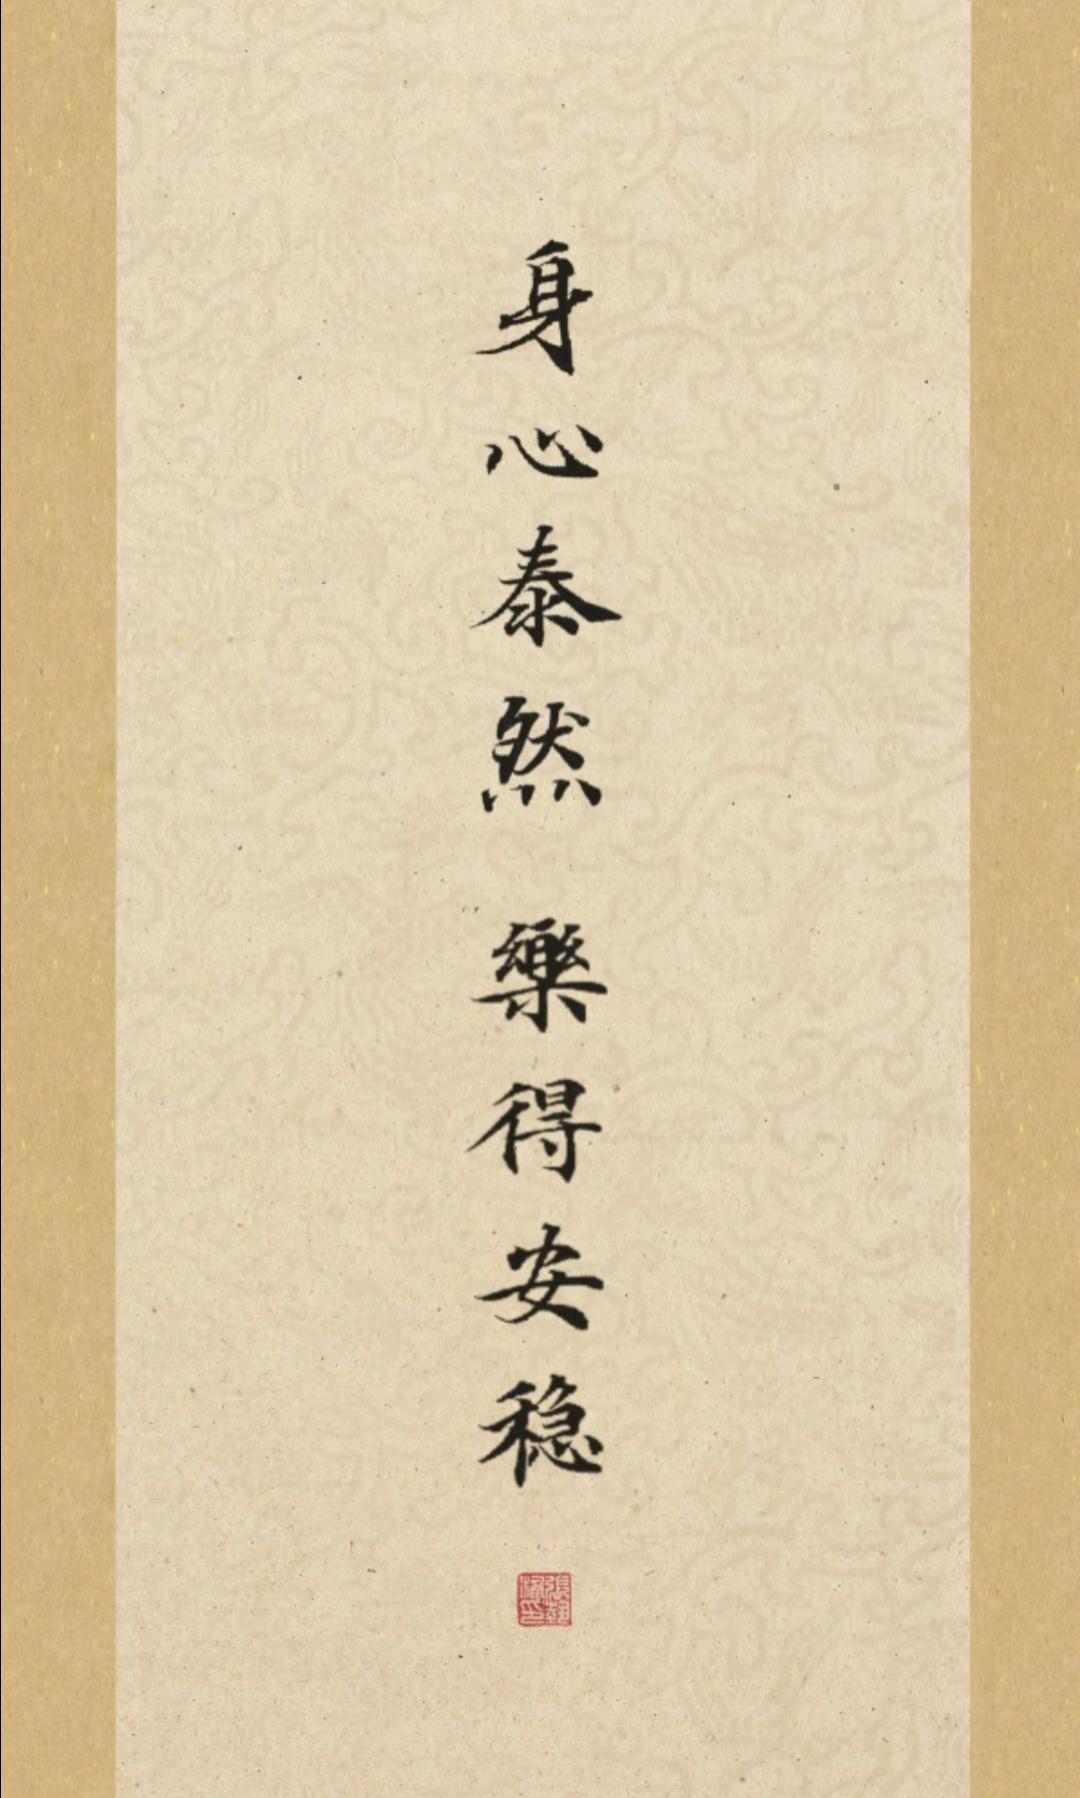 身心泰然 樂得安稳